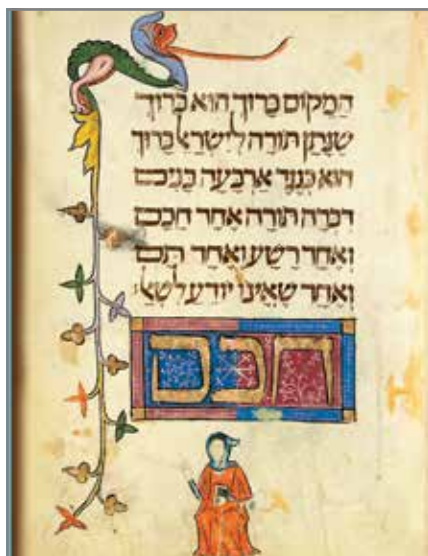 הַמָּקוֹם בָּרוּךְ הוּא בָּרוּךְ
שֶׁנָּתַן תּוֹרָה לְיִשְׂרָאֵל בָּרוּךְ
הוּא כְּנֶגֶד אַרְבָּעָה בָנִים
דִּבְּרָה תוֹרָה אֶחָד חָכָם
וְאֶחָד רָשָׁע וְאֶחָד תָּם
וְאֶחָד שֶׁאֵינוֹ יוֹדֵעַ
חכם